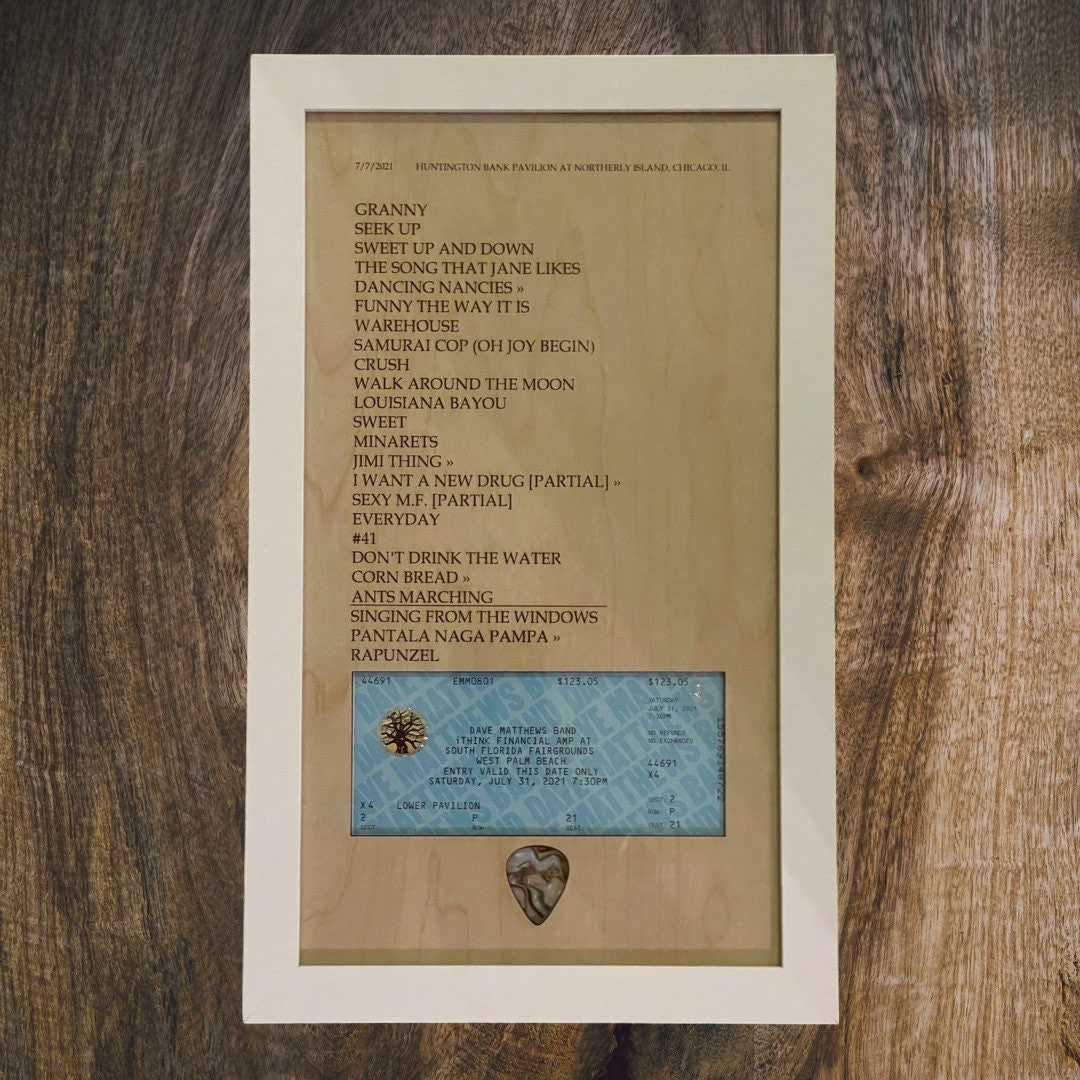 7/7/2021 HUNTINGTON BANK PAVILION AT NORTHERLY ISLAND, CHICAGO, IL
GRANNY
SEEK UP
SWEET UP AND DOWN
THE SONG THAT JANE LIKES
DANCING NANCIES »
FUNNY THE WAY IT IS
WAREHOUSE
SAMURAI COP (OH JOY BEGIN)
CRUSH
WALK AROUND THE MOON
LOUISIANA BAYOU
SWEET
MINARETS
JIMI THING »
I WANT A NEW DRUG [PARTIAL] »
SEXY M.F. [PARTIAL]
EVERYDAY
#41
DON'T DRINK THE WATER
CORN BREAD »
ANTS MARCHING
SINGING FROM THE WINDOWS
PANTALA NAGA PAMPA »
RAPUNZEL
44691 EMM0801 $123.05 $123.05
DAVE MATTHEWS BAND
iTHINK FINANCIAL AMP AT
SOUTH FLORIDA FAIRGROUNDS
WEST PALM BEACH
ENTRY VALID THIS DATE ONLY
SATURDAY, JULY 31, 2021 7:30PM
X4 LOWER PAVILION
2 P 21
SECT: ROW: SEAT:
SATURDAY
JULY 31, 2021
7:30PM
NO REFUNDS
NO EXCHANGES
44691
X4
SECT: 2
ROW: P
SEAT: 21